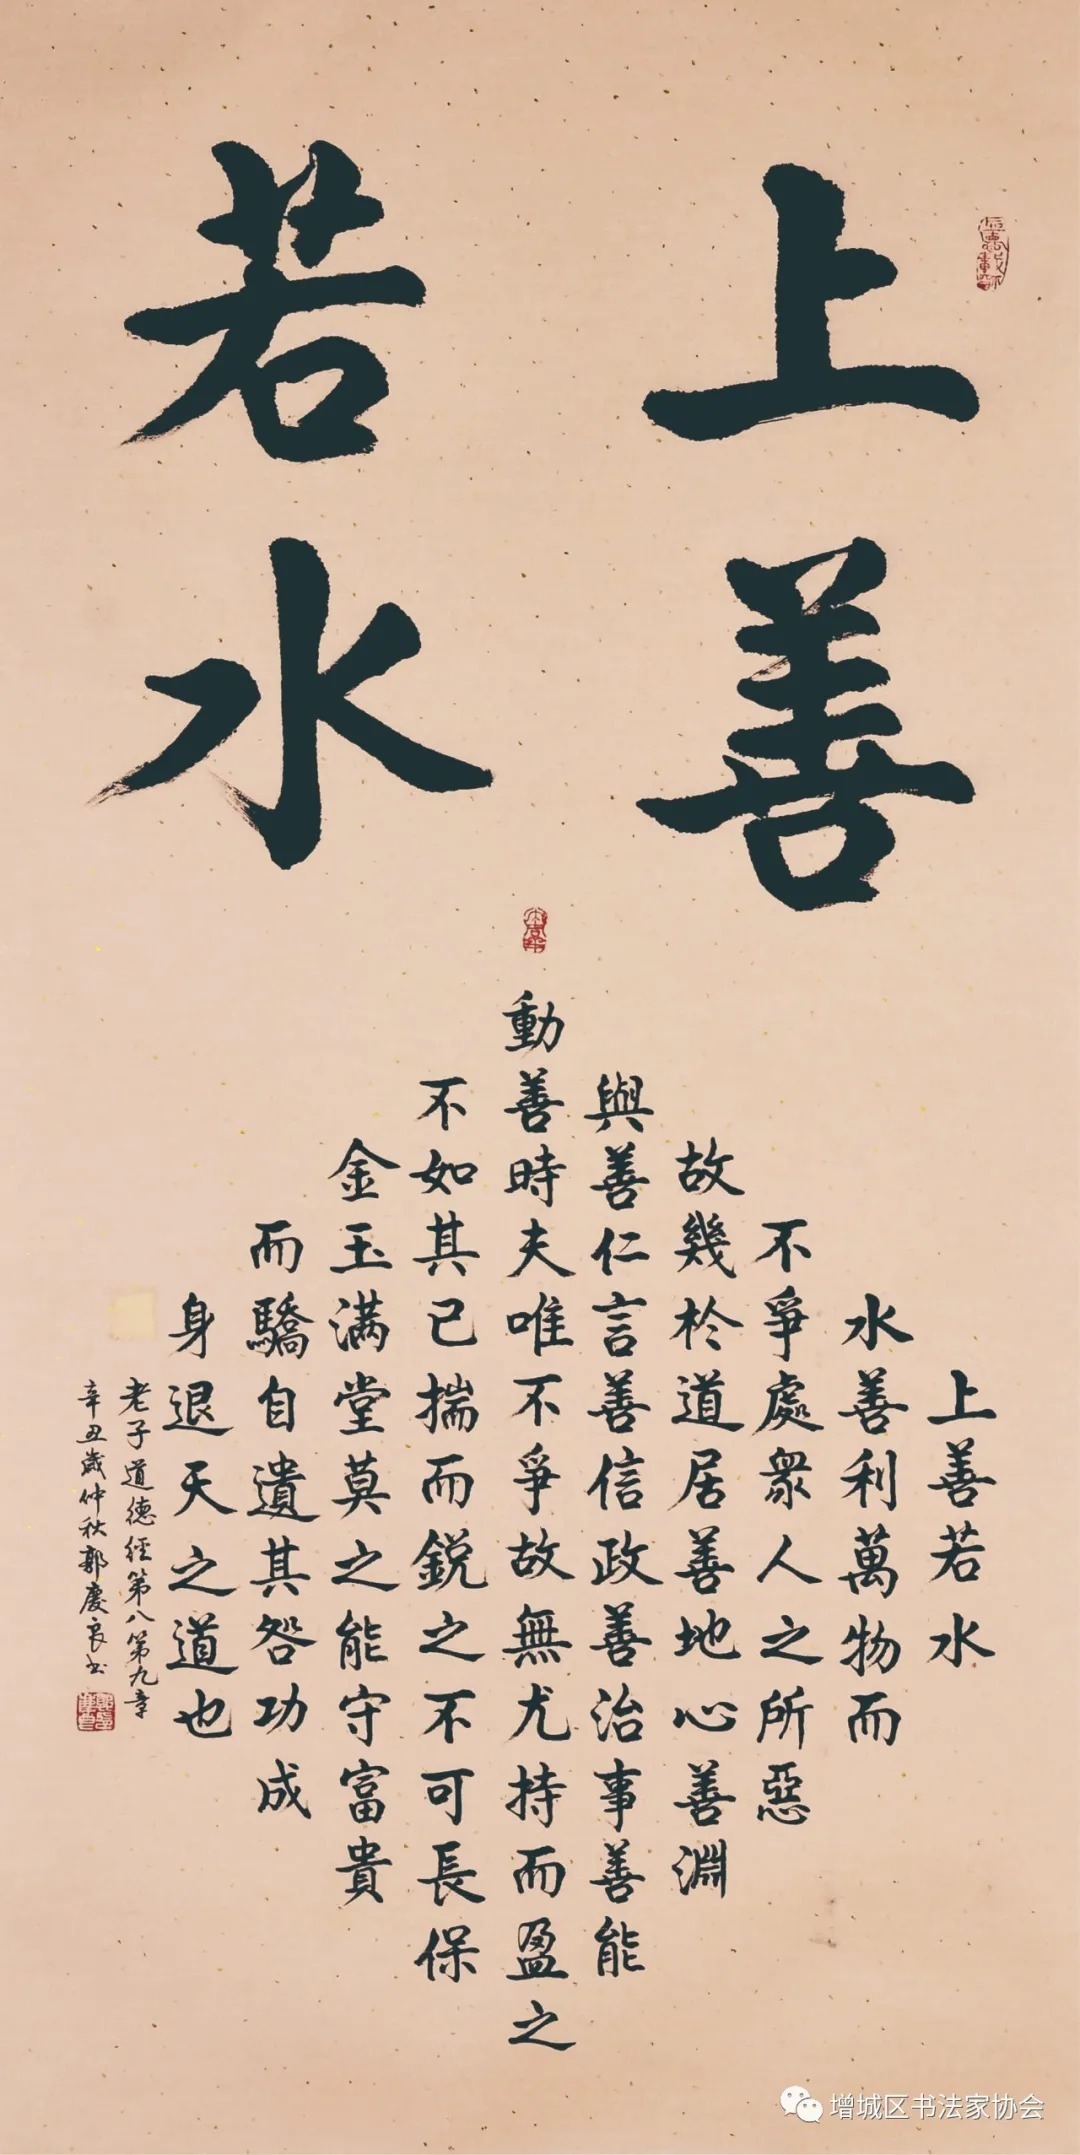 上善
若水
上善若水
水善利萬物而
不爭處衆人之所惡
故幾於道居善地心善淵
與善仁言善信政善治事善能
動善時夫唯不爭故無尤持而盈之
不如其已揣而鋭之不可長保
金玉满堂莫之能守富貴
而驕自遺其咎功成
身退天之道也
老子道德經第八第九章
辛丑歲仲秋郭慶良书
增城区书法家协会